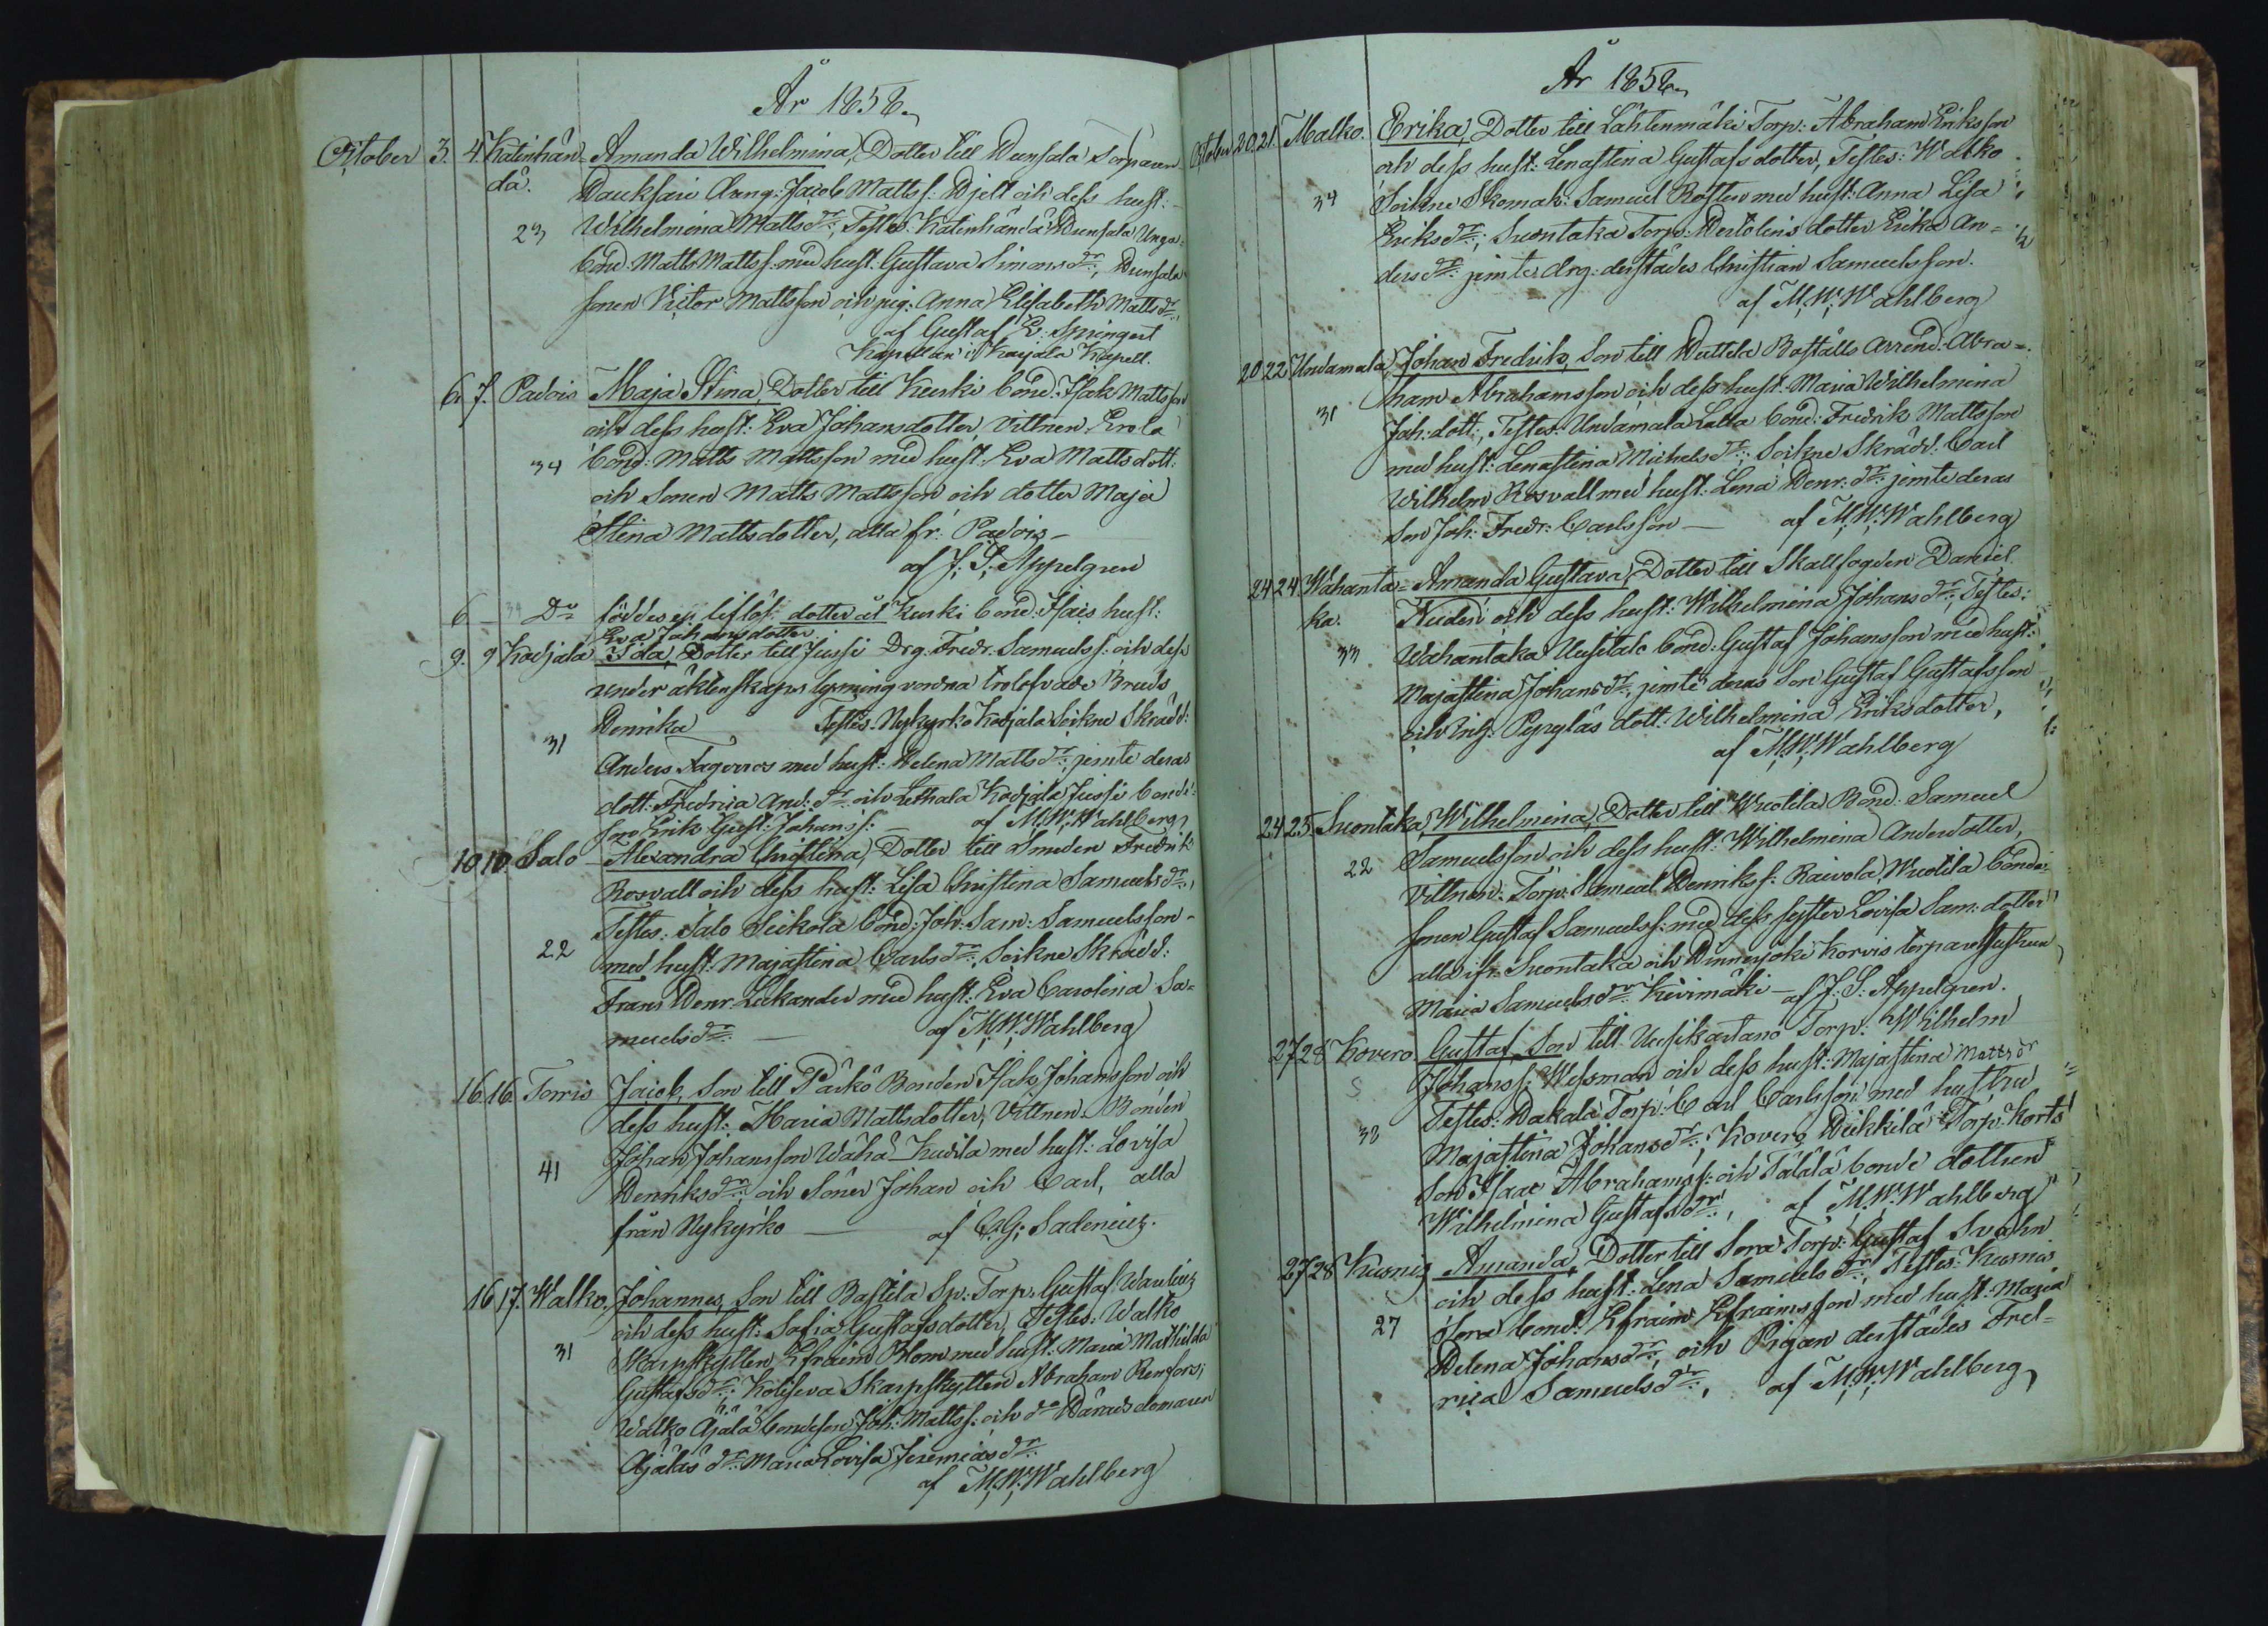 År 1858.
October 3. 4. Katinhän- Amanda Wilhelmina, Dotter till Hunsala Torparen
dä. Hauksari Arrng: Jacob Mattss: Hjelt och dess hust:
23 Wilhelmina Mattsdr:, Testes: Katinhändä Hunsala Unga
Bond: Matts Mattss: med hust: Gustava Simonsdr:, Hunsala
sonen Victor Mattsson och pig: Anna Elisabeth Mattsdr:,
af Gustaf E: Springert
Kapellan i Karjala Kapell.
6. 7. Padois Maja Stina, Dotter till Kurki Bond: Isak Mattsson
och dess hust: Eva Johansdotter, vittnen: Erola
34 Bond: Matts Mattsson med hust: Eva Mattsdott:
och sonen Matts Mattsson och dotter Maja
Stina Mattsdotter, alla fr: Padois -
af J. S. Appelgren
6 - 34 Do föddes en liflös dotter åt Kurki Bond: Isacs hust:
Eva Johansdotter
9. 9 Kodjala Ida, Dotter till Jussi Drg: Fredr. Samuelss: och dess
under äktenskaps lysning vordna trolofvade Bruds
Henrika Testes: Nykyrko Kodjala Sockne Skrädd:
31 Anders Fagerroos med hust: Helena Mattsdr:, jemte deras
dott: Fredrica And: dr: och Lethala Kodjala Jussi bonde-
son Erik Gust: Johanss: - af M. W. Wahlberg
10 10. Salo Alexandra Christina, Dotter till Smeden Fredrik
Rosvall och dess hust: Lisa Christina Samuelsdr:,
Testes: Salo Seikola Bond: Joh: Sam: Samuelsson
22 med hust: Majastina Carlsdr:, Sockne Skrädd:
Frans Henr. Lukander med hust: Eva Carolina Sa-
muelsdr: - af M. W. Wahlberg
16 16. Torris Jacob, Son till Pärkö Bonden Isak Johansson och
dess hust: Maria Mattsdotter, Vittnen: Bonden
Johan Johansson Wähä-Kuvila med hust: Lovisa
41 Henriksdr:, och söner Johan och Carl, alla
från Nykyrko - af C. G. Sadeniuz.
16 17. Walko. Johannes, Son till Bastila Sp. Torp: Gustaf Wauliuz
och dess hust: Sofia Gustafsdotter, Testes: Walko
31 Skarpskytten Efraim Blom med hust: Maria Mathilda
Gustafsdr:, Kolisева Skarpskytten Abraham Renfors;
Walko Äjälä bondeson Joh: Mattss: och do Häradsdomaren
Äjäläs dr: Maria Lovisa Jeremiasdr:
af M. W. Wahlberg
År 1858.
October 20. 21. Malko. Erika, Dotter till Lähtenmäki Torp: Abraham Eriksson
och dess hust: Lenastina Gustafsdotter, Testes: Walko
34 Sockne Skomak: Samuel Roster med hust: Anna Lisa
Eriksdr:, Suontaka Torp: Hertolins dotter Erika An-
dersdr: jemte drg: derstädes Christian Samuelsson.
af M. W. Wahlberg
20 22 Undamala Johan Fredrik, Son till Huttela Boställs Arrend: Abra-
ham Abrahamsson och dess hust: Maria Wilhelmina
31 Joh: dott:, Testes: Undamala Lalla Bond: Fredrik Mattsson
med hust: Lenastina Michelsdr:, Sockne Skrädd: Carl
Wilhelm Rosvall med hust: Lena Henr: dr: jemte deras
son Joh: Fredr: Carlsson - af M. W. Wahlberg
24 24 Wähanta- Amanda Gustava, Dotter till Skallfogden Daniel
ka. Nuden och dess hust: Wilhelmina Johansdr:, Testes:
33 Wähantaka Uusitalo Bond: Gustaf Johansson med hust:
Majastina Johansdr:, jemte deras son Gustaf Gustafsson
och Inh: Pynyläs dott: Wilhelmina Eriksdotter,
af M. W. Wahlberg
24 25. Suontaka Wilhelmina, Dotter till Wuotila Bond: Samuel
22 Samuelsson och dess hust: Wilhelmina Andersdotter,
Vittnen: Torp: Samuel Henrikss: Raivola, Wuotila bonde-
sonen Gustaf Samuelss: med dess syster Lovisa Sam: dotter
alla ifr. Suontaka och Hinnerjoki Korvis torpare hustrun
Maria Samuelsdr: Kivimäki - af J. S. Appelgren.
27 28 Kovero. Gustaf, Son till Uusikartano Torp: Wilhelm
Johanss: Wessman och dess hust: Majastina Mattsdr
Testes: Hakala Torp: Carl Carlsson med hustru
38 Majastina Johansdr:, Kovero Heikkilä Torp: Korts
son Isaac Abrahamss: och Tälälä bonde dottren
Wilhelmina Gustafsdr:, af M. W. Wahlberg
27 28 Kusnis Amanda, Dotter till Sorva Torp: Gustaf Svahn
och dess hust: Lena Samuelsdr:, Testes: Kusnis
27 Sorva Bond: Efraim Efraimsson med hust: Maria
Helena Johansdr:, och Pigan derstädes Fred-
rica Samuelsdr:, af M. W. Wahlberg